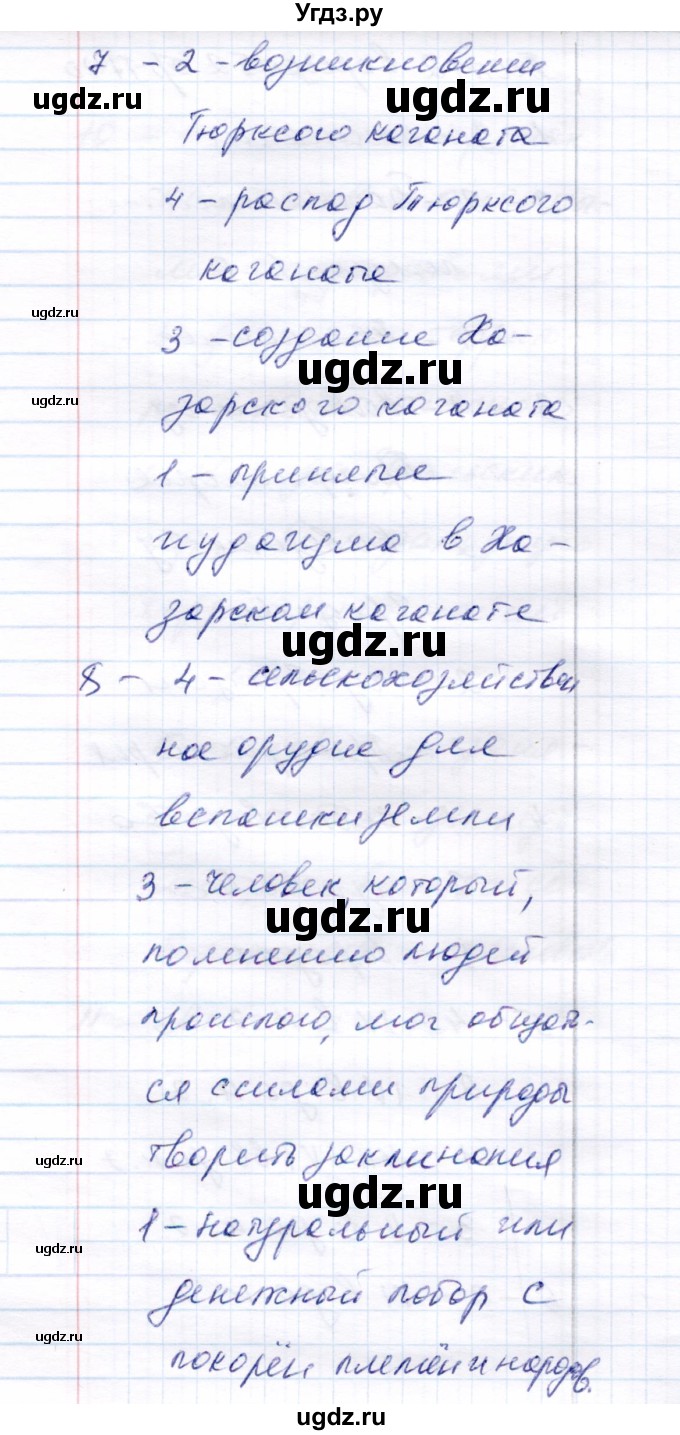 Угдз.ру
7 - 2 - возникновение
ugdz.ru ugdz.ru
Тюрксого каганата
4 - распад Тюрксого
каганата
ugdz.ru
3 - создание Ха-
ugdz.ru
ugdz.ru
зарского каганата
1 - принятие
иудаизма в Ха-
зарском каганате
ugdz.ru
8 - 4 - сельскохозяйствен
ное орудие для
вспашки земли
3 - человек, который,
ugdz.ru
по мнению людей
прошлого, мог общать-
ся с силами природы
творить заклинания
ugdz.ru
ugdz.ru
1 - натуральный или
денежный побор с
ugdz.ru
покорён племён и народов.
ugdz.ru